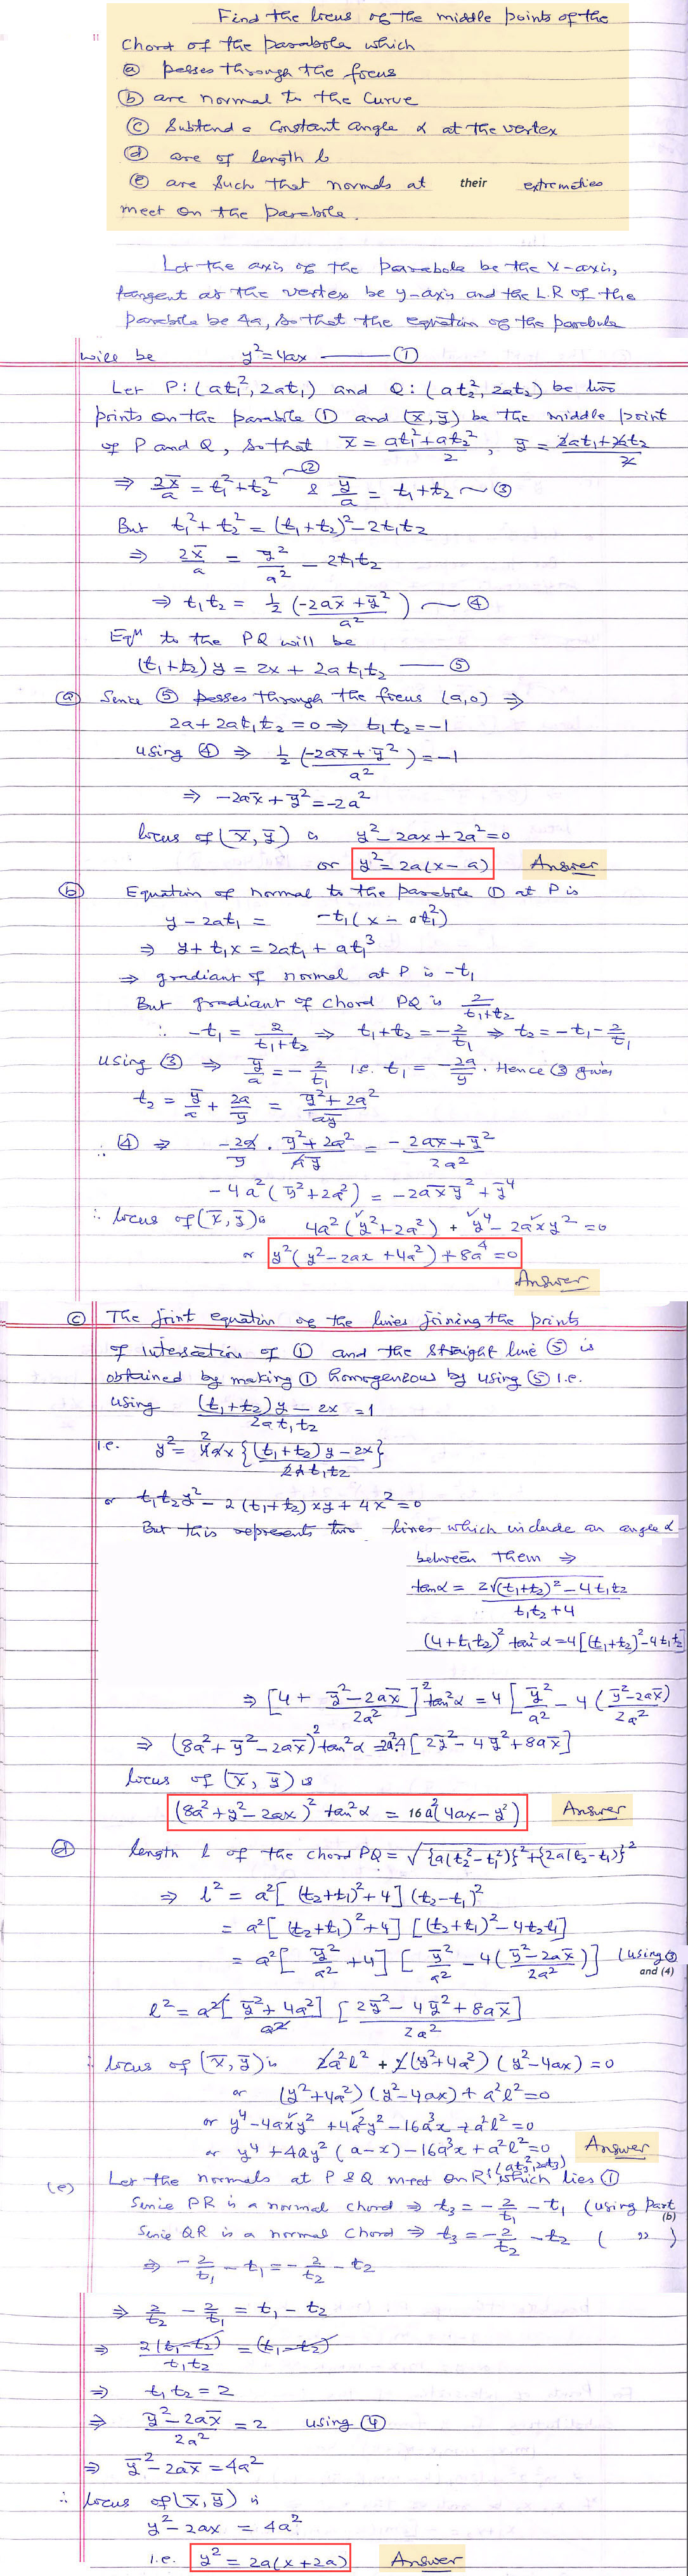 Find the locus of the middle points of the
11 Chord of the parabola which
(a) passes through the focus
(b) are normal to the curve
(c) subtend a constant angle α at the vertex
(d) are of length l
(e) are such that normals at their extremeties
meet on the parabola.
Let the axis of the parabola be the X-axis,
tangent at the vertex be y-axis and the L.R of the
parabola be 4a, so that the equation of the parabola
will be y² = 4ax —— (1)
Let P: (at₁², 2at₁) and Q: (at₂², 2at₂) be two
points on the parabola (1) and (x̄, ȳ) be the middle point
of P and Q, so that x̄ = (at₁² + at₂²)/2, ȳ = (2at₁ + 2at₂)/2
⇒ 2x̄/a = t₁² + t₂² ~ (2) & ȳ/a = t₁ + t₂ ~ (3)
But t₁² + t₂² = (t₁ + t₂)² − 2t₁t₂
⇒ 2x̄/a = ȳ²/a² − 2t₁t₂
⇒ t₁t₂ = ½ (−2ax̄ + ȳ²)/a² ~ (4)
Eqⁿ to the PQ will be
(t₁ + t₂) y = 2x + 2at₁t₂ —— (5)
(a) Sence (5) passes through the focus (a,0) ⇒
2a + 2at₁t₂ = 0 ⇒ t₁t₂ = −1
using (4) ⇒ ½ (−2ax̄ + ȳ²)/a² = −1
⇒ −2ax̄ + ȳ² = −2a²
locus of (x̄, ȳ) is y² − 2ax + 2a² = 0
or y² = 2a(x − a) Answer
(b) Equation of normal to the parabola (1) at P is
y − 2at₁ = −t₁(x − at₁²)
⇒ y + t₁x = 2at₁ + at₁³
⇒ gradiant of normal at P is −t₁
But gradiant of chord PQ is 2/(t₁+t₂)
∴ −t₁ = 2/(t₁+t₂) ⇒ t₁ + t₂ = −2/t₁ ⇒ t₂ = −t₁ − 2/t₁
using (3) ⇒ ȳ/a = −2/t₁ i.e. t₁ = −2a/ȳ. Hence (3) gives
t₂ = ȳ/a + 2a/ȳ = (ȳ² + 2a²)/aȳ
∴ (4) ⇒ −2a/ȳ · (ȳ² + 2a²)/aȳ = (−2ax̄ + ȳ²)/2a²
−4a²(ȳ² + 2a²) = −2ax̄ȳ² + ȳ⁴
∴ locus of (x̄, ȳ) is 4a²(y² + 2a²) + y⁴ − 2axy² = 0
or y²(y² − 2ax + 4a²) + 8a⁴ = 0
Answer
(c) The joint equation of the lines joining the points
of intersection of (1) and the straight line (5) is
obtained by making (1) homogeneous by using (5) i.e.
using ((t₁+t₂)y − 2x)/2at₁t₂ = 1
i.e. y² = 4ax {(t₁+t₂)y − 2x}/2at₁t₂
or t₁t₂y² − 2(t₁+t₂)xy + 4x² = 0
But this represents two lines which include an angle α
between them ⇒
tanα = 2√((t₁+t₂)² − 4t₁t₂)/(t₁t₂ + 4)
(4 + t₁t₂)² tan²α = 4[(t₁+t₂)² − 4t₁t₂]
⇒ [4 + (ȳ² − 2ax̄)/2a²]² tan²α = 4[ȳ²/a² − 4(ȳ² − 2ax̄)/2a²]
⇒ (8a² + ȳ² − 2ax̄)² tan²α = 2a²·4[2ȳ² − 4ȳ² + 8ax̄]
locus of (x̄, ȳ) is
(8a² + y² − 2ax)² tan²α = 16a²(4ax − y²) Answer
(d) length l of the chord PQ = √{a(t₂² − t₁²)}² + {2a(t₂ − t₁)}²
⇒ l² = a²[(t₂+t₁)² + 4](t₂ − t₁)²
= a²[(t₂+t₁)² + 4][(t₂+t₁)² − 4t₂t₁]
= a²[ȳ²/a² + 4][ȳ²/a² − 4(ȳ² − 2ax̄)/2a²)] (using (3) and (4)
l² = a²[ȳ² + 4a²]/a² [2ȳ² − 4ȳ² + 8ax̄]/2a²
∴ locus of (x̄, ȳ) is 2a²l² + 2(y² + 4a²)(y² − 4ax) = 0
or (y² + 4a²)(y² − 4ax) + a²l² = 0
or y⁴ − 4axy² + 4a²y² − 16a³x + a²l² = 0
or y⁴ + 4ay²(a − x) − 16a³x + a²l² = 0 Answer
(e) Let the normals at P & Q meet on R: (at₃², 2at₃) which lies (1)
Senie PR is a normal chord ⇒ t₃ = −2/t₁ − t₁ (using Part (b)
Senie QR is a normal chord ⇒ t₃ = −2/t₂ − t₂ ( " )
⇒ −2/t₁ − t₁ = −2/t₂ − t₂
⇒ 2/t₂ − 2/t₁ = t₁ − t₂
⇒ 2(t₁ − t₂)/t₁t₂ = (t₁ − t₂)
⇒ t₁t₂ = 2
⇒ (ȳ² − 2ax̄)/2a² = 2 using (4)
⇒ ȳ² − 2ax̄ = 4a²
∴ locus of (x̄, ȳ) is
y² − 2ax = 4a²
i.e. y² = 2a(x + 2a) Answer